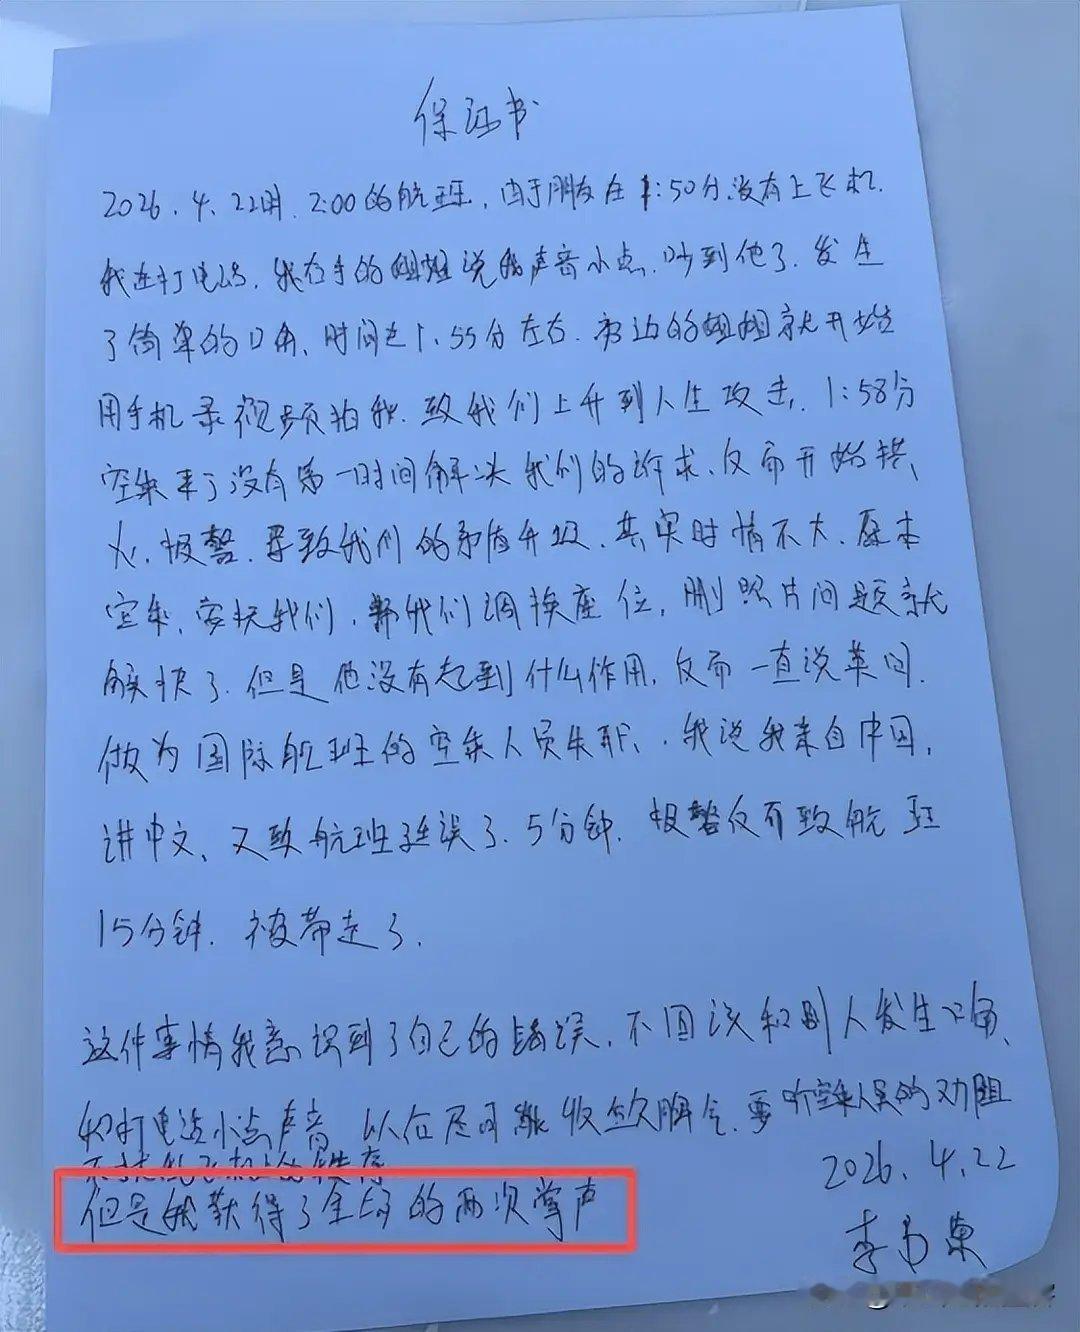 保证书
2026.4.22时.2:00的航班,由于朋友在1:50分没有上飞机.
我在打电话,我右手的姐姐说我声音小点.吵到他了.发生
了简单的口角,时间是1.55分左右.旁边的姐姐就开始
用手机录视频拍我.致我们上升到人生攻击,1:58分
空乘来了没有第一时间解决我们的诉求、反而开始拱
火,报警.导致我们的矛盾升级.其实时情不大.原本
空乘,安抚我们,帮我们调换座位,删照片问题就
解决了.但是他没有起到什么作用,反而一直说英问.
做为国际航班的空乘人员失职,我说我来自中国,
讲中文,又致航班延误了.5分钟.报警反而致航班
15分钟.被带走了.
这件事情我意识到了自己的错误,不因该和别人发生口角、
和打电话小点声音,以后尽可能收敛脾气.要听空乘人员的劝阻
但是我获得了全场的两次掌声
2026.4.22